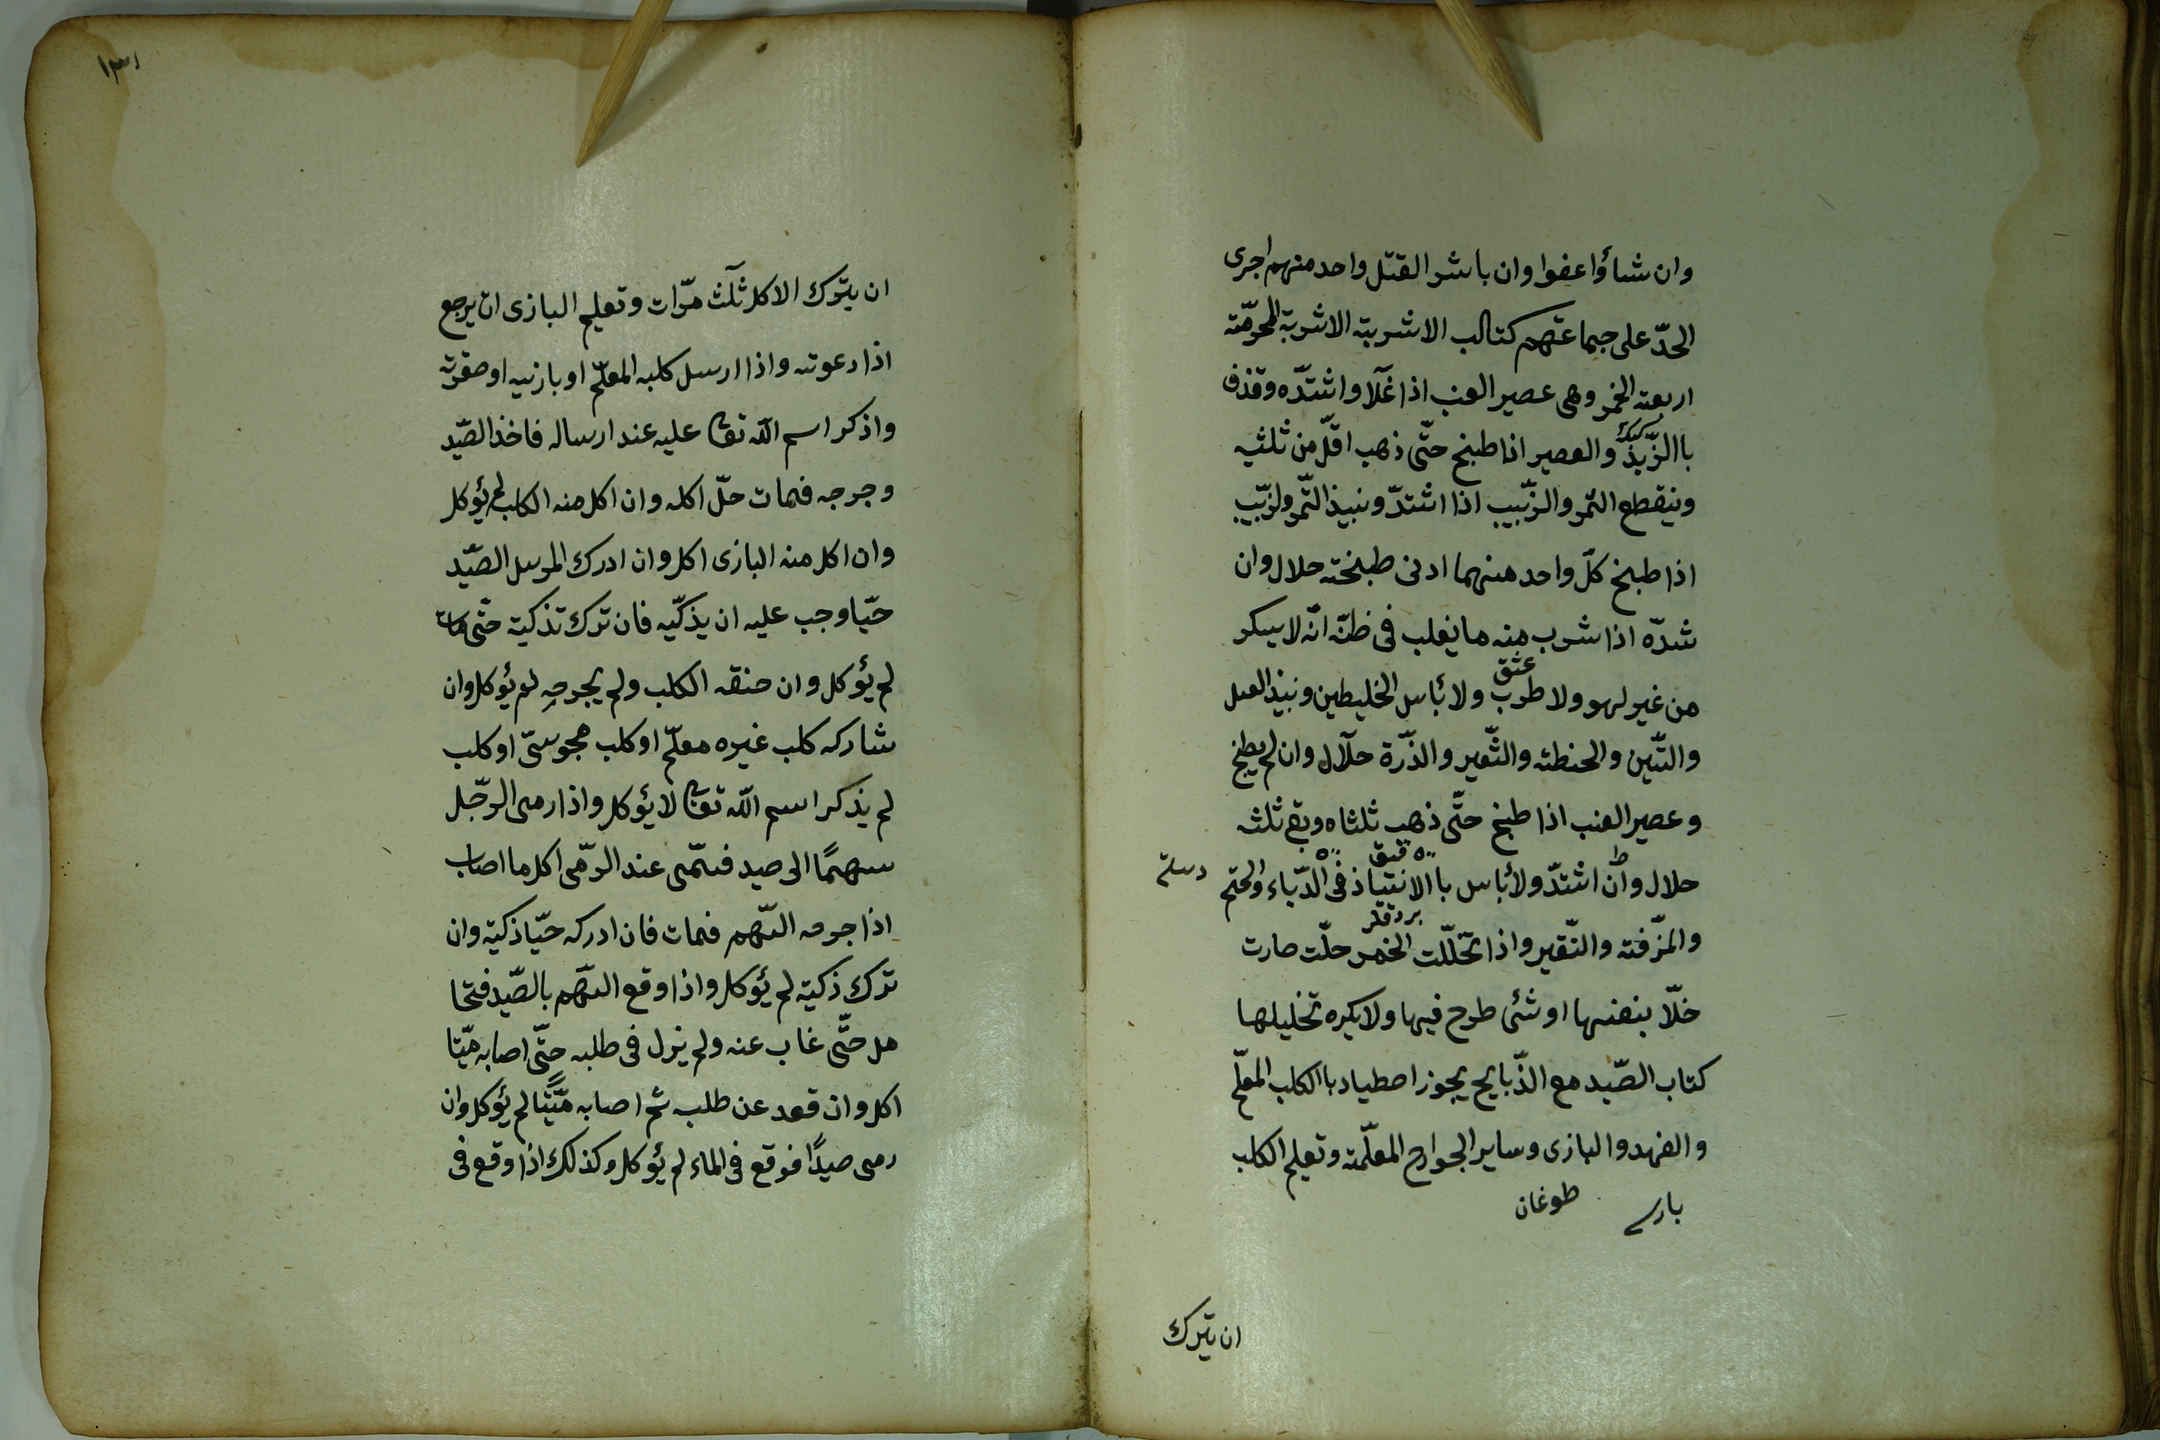 وان شاؤا عفوا وان باشر القتل واحد منهم اجرى
الحدّ على جماعتهم كتاب الاشربة الاشربة المحرّمة
اربعة الخمر وهى عصير العنب اذا غلا واشتدّه وقذف
باالزّبد والعصير اذا طبخ حتّى ذهب اقلّ من ثلثيه
ونيقطع التمر والزّبيب اذا اشتدّ ونبيذ التّمر والزبّيب
اذا طبخ كلّ واحد منهما ادنى طبخة حلال وان
شدّه اذا شرب منه ما يغلب فى ظنّه انّه لا يسكر
عشق
من غير لهو ولا طرب ولا بأس الخليطين ونبيذ العسل
والتّين والحنطة والشّعير والذّرة حلال وان لم يطبخ
وعصير العنب اذا طبخ حتّى ذهب ثلثاه وبقى ثلثه
حلال وان اشتدّ ولا بأس باالانتباذ فى الدّباء والحتم
والمزّفته والنّقير واذا تخلّلت الخمر حلّت صارت
خلّا بنفسها او شئ طرح فيها ولا يكره تخليلها
كتاب الصّيد مع الذّبايح يجوز اصطياد باالكلب المعلّم
والفهد والبازى وساير الجوارح المعلّمة وتعليم الكلب
بارس طوغان
ان يترك
١٣١
ان يترك الاكل ثلث مرّات وتعليم البازى ان يرجع
اذا دعوته واذا ارسل كلبه المعلّم او بازيه او صقرته
واذكر اسم الله تعا عليه عند ارساله فاخذ الصّيد
وجرحه فمات حلّ اكله وان اكل منه الكلب لم يؤكل
وان اكل منه البازى اكل وان ادرك المرسل الصّيد
حيّا وجب عليه ان يذكّيه فان ترك تذكية حتّى مات
لم يؤكل وان خنقه الكلب ولم يجرحه لم يؤكل وان
شاركه كلب غيره معلّم او كلب مجوسىّ او كلب
لم يذكر اسم الله تعا لا يؤكل واذا رمى الرجّل
سهمًا الى صيد فسمّى عند الرّمى اكل ما اصاب
اذا جرحه السّهم فمات فان ادركه حيّا ذكيّه وان
ترك ذكيّه لم يؤكل واذا وقع السّهم بالصّيد فتحا
مل حتّى غاب عنه ولم يزل فى طلبه حتّى اصابه ميّتا
اكل وان قعد عن طلبه ثم اصابه ميّتًا لم يؤكل وان
رمى صيدًا فوقع فى الماء لم يؤكل وكذلك اذا وقع فى